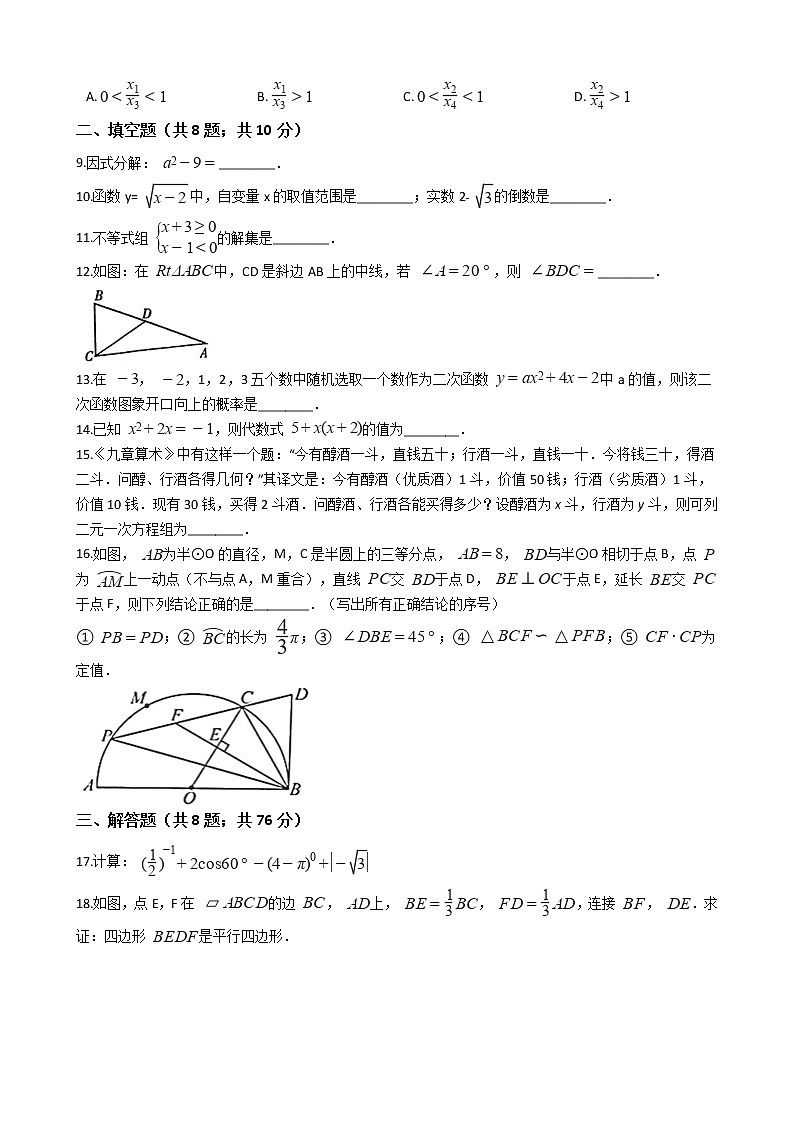 A. 0 < x₁/x₃ < 1 B. x₁/x₃ > 1 C. 0 < x₂/x₄ < 1 D. x₂/x₄ > 1
二、填空题（共8题；共10分）
9.因式分解： a²－9＝________．
10.函数 y= √(x－2) 中，自变量 x 的取值范围是________；实数 2- √3 的倒数是________．
11.不等式组 {x＋3≥0 x－1<0 的解集是________．
12.如图：在 RtΔABC 中，CD 是斜边 AB 上的中线，若 ∠A＝20°，则 ∠BDC＝________．
B
D
C
A
13.在 －3， －2，1，2，3 五个数中随机选取一个数作为二次函数 y＝ax²＋4x－2 中 a 的值，则该二
次函数图象开口向上的概率是________．
14.已知 x²＋2x＝－1，则代数式 5＋x(x＋2) 的值为________．
15.《九章算术》中有这样一个题：“今有醇酒一斗，直钱五十；行酒一斗，直钱一十．今将钱三十，得酒
二斗．问醇、行酒各得几何？”其译文是：今有醇酒（优质酒）1 斗，价值 50 钱；行酒（劣质酒）1 斗，
价值 10 钱．现有 30 钱，买得 2 斗酒．问醇酒、行酒各能买得多少？设醇酒为 x 斗，行酒为 y 斗，则可列
二元一次方程组为________．
16.如图， AB 为半⊙O 的直径，M，C 是半圆上的三等分点， AB＝8， BD 与半⊙O 相切于点 B，点 P
为 A͡M 上一动点（不与点 A，M 重合），直线 PC 交 BD 于点 D， BE⊥OC 于点 E，延长 BE 交 PC
于点 F，则下列结论正确的是________．（写出所有正确结论的序号）
① PB＝PD；② B͡C 的长为 4/3 π；③ ∠DBE＝45°；④ △BCF∽△PFB；⑤ CF·CP 为
定值．
M
C
D
F
P
E
A
O
B
三、解答题（共8题；共76分）
17.计算： (1/2)⁻¹＋2cos60°－(4－π)⁰＋|－√3|
18.如图，点 E，F 在 ▱ABCD 的边 BC， AD 上， BE＝1/3 BC， FD＝1/3 AD，连接 BF， DE．求
证：四边形 BEDF 是平行四边形．